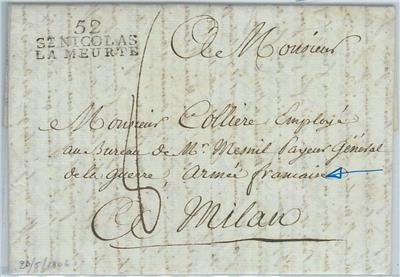 52
ST NICOLAS
LA MEURTE
A Monsieur
Monsieur Colliere Employé
au Bureau de Mr. Mesnil Payeur Général
de la guerre, Armée francaise
A Milan